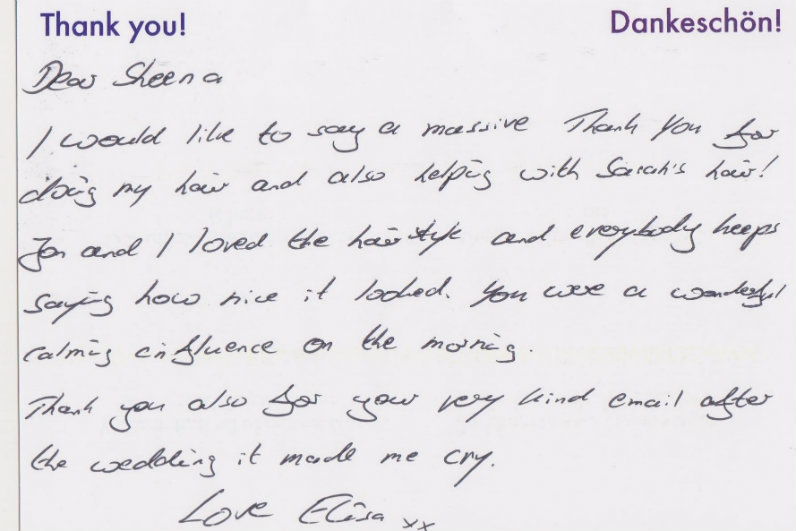 Thank you! Dankeschön!
Dear Sheena
I would like to say a massive Thank You for
doing my hair and also helping with Sarah's hair!
Jon and I loved the hairstyle and everybody keeps
saying how nice it looked. You were a wonderful
calming influence on the morning.
Thank you also for your very kind email after
the wedding it made me cry.
Love Elisa xx